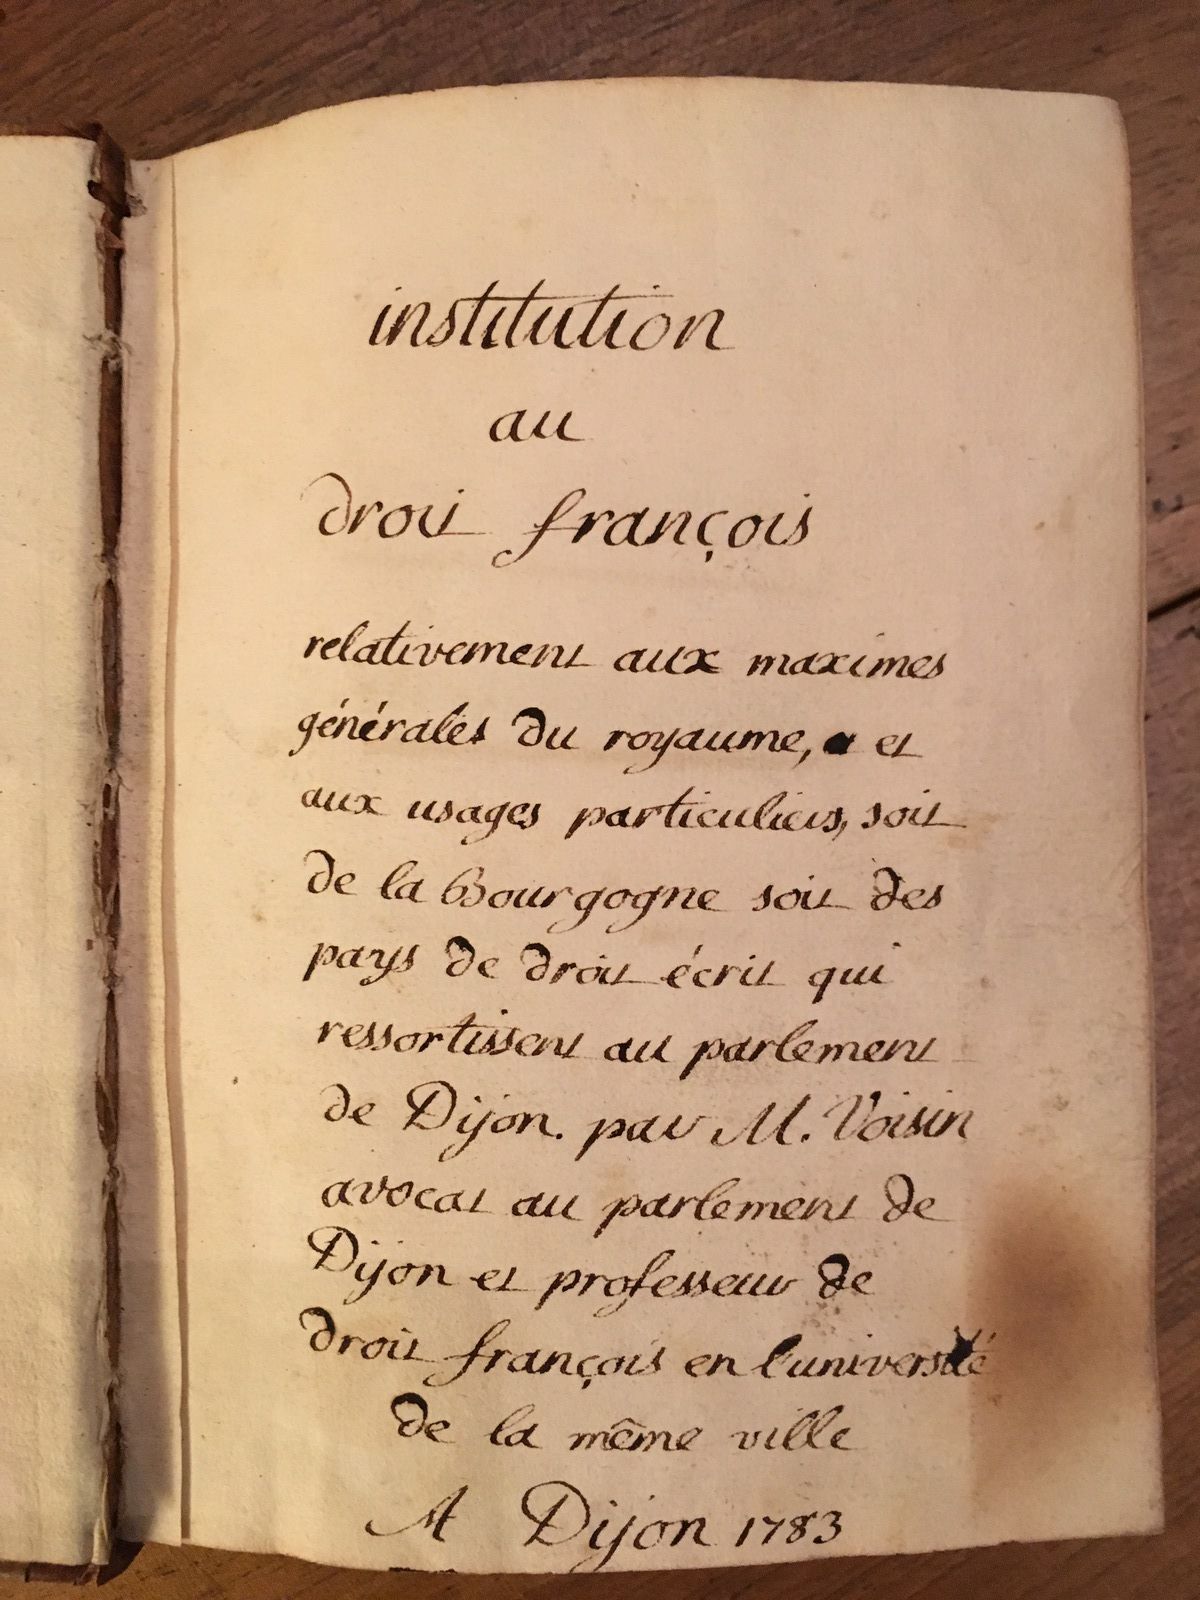 institution
au
droit françois
relativement aux maximes
générales du royaume, et
aux usages particuliers, soit
de la Bourgogne soit des
pays de droit écrit qui
ressortissent au parlement
de Dijon. par M. Voisin
avocat au parlement de
Dijon et professeur de
droit françois en l'université
de la même ville
A Dijon 1783